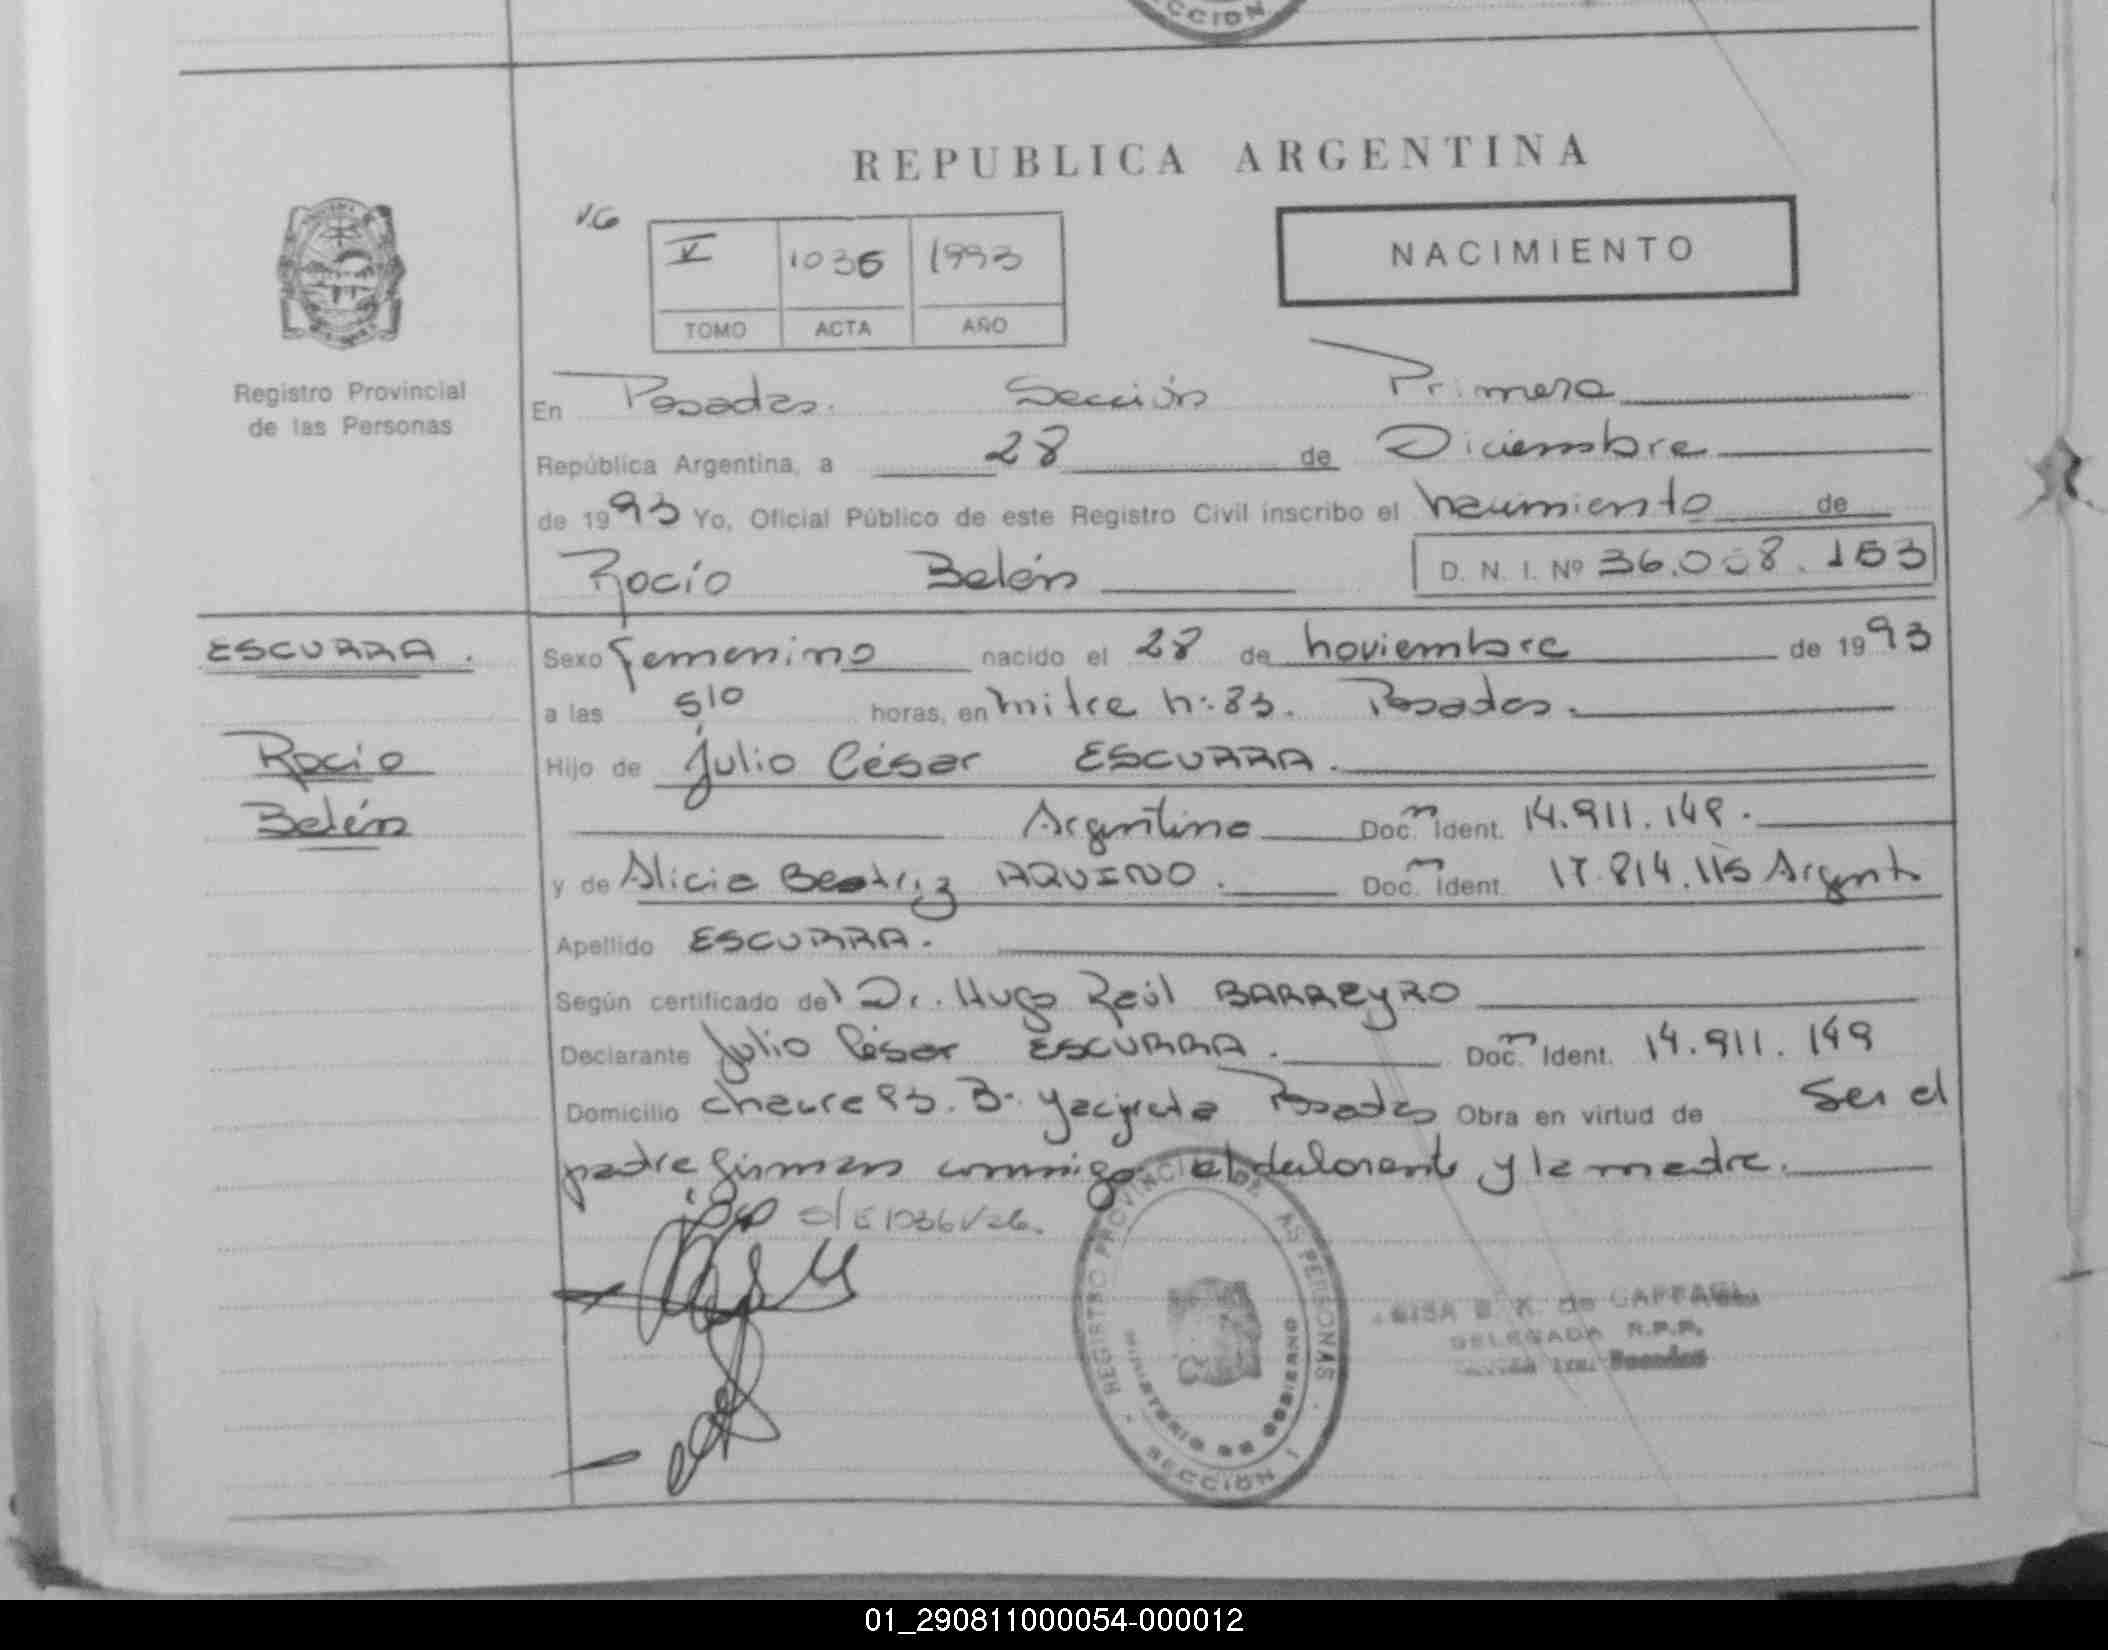 CCION
REPUBLICA ARGENTINA
V.G
V 1036 1993
TOMO ACTA AÑO
NACIMIENTO
Registro Provincial
de las Personas
En Posadas. Sección Primera
República Argentina, a 28 de Diciembre
de 1993 Yo, Oficial Público de este Registro Civil inscribo el nacimiento de
Rocío Belén D. N. I. Nº 36.008.153
ESCURRA.
Rocío
Belén
Sexo femenino nacido el 28 de noviembre de 1993
a las 510 horas, en mitre n: 83. Posadas.
Hijo de Julio César ESCURRA.
Argentino Doc. Ident. 14.911.149.
y de Alicia Beatriz AQUINO. Doc. Ident. 17.814.115 Argent
Apellido ESCURRA.
Según certificado del Dr. Hugo Raúl BARREYRO
Declarante Julio César ESCURRA. Doc. Ident. 14.911.149
Domicilio B. Yacyreta Posadas Obra en virtud de Ser el
padre firman conmigo el declarante y la madre.
S/E 1036
REGISTRO PROVINCIAL DE LAS PERSONAS
MINISTERIO DE GOBIERNO
SECCION 1
DELEGADA R.P.P.
Posadas
01_290811000054-000012